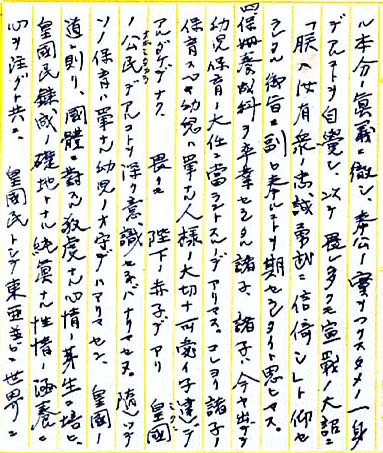 ル本分ノ眞義ニ徹シ、奉公ノ實ヲツクスタメノ一身
デアルコトヲ自覺シ、以テ畏クモ宣戰ノ大詔ニ
「朕ハ汝有衆ノ忠誠勇武ニ信倚シ」ト仰セ
ラレタル御旨ニ副ヒ奉ルコトヲ期セラレタイト思ヒマス。
保姆養成科ヲ卒業セラレタル諸子、諸子ハ今ヤ出デテ
幼児保育ノ大任ニ當ラントスルノデアリマス。コレヨリ諸子ノ
保育スベキ幼児ハ單ナル人様ノ大切ナ可愛イ子達デ
アルダケデナク、畏クモ 陛下ノ赤子デアリ 皇國
ノ公民デアルコトヲ深ク意識セネバナリマセヌ。隨ツテ
ソノ保育ハ單ナル幼児ノオ守デハアリマセン。皇國ノ
道ニ則リ、國體ニ對スル敬虔ナル心情ノ芽生ニ培ヒ、
皇國民錬成ノ礎地トナル純眞ナル性情ノ涵養ニ
心ヲ注グト共ニ、皇國民トシテ東亜並ビニ世界ニ